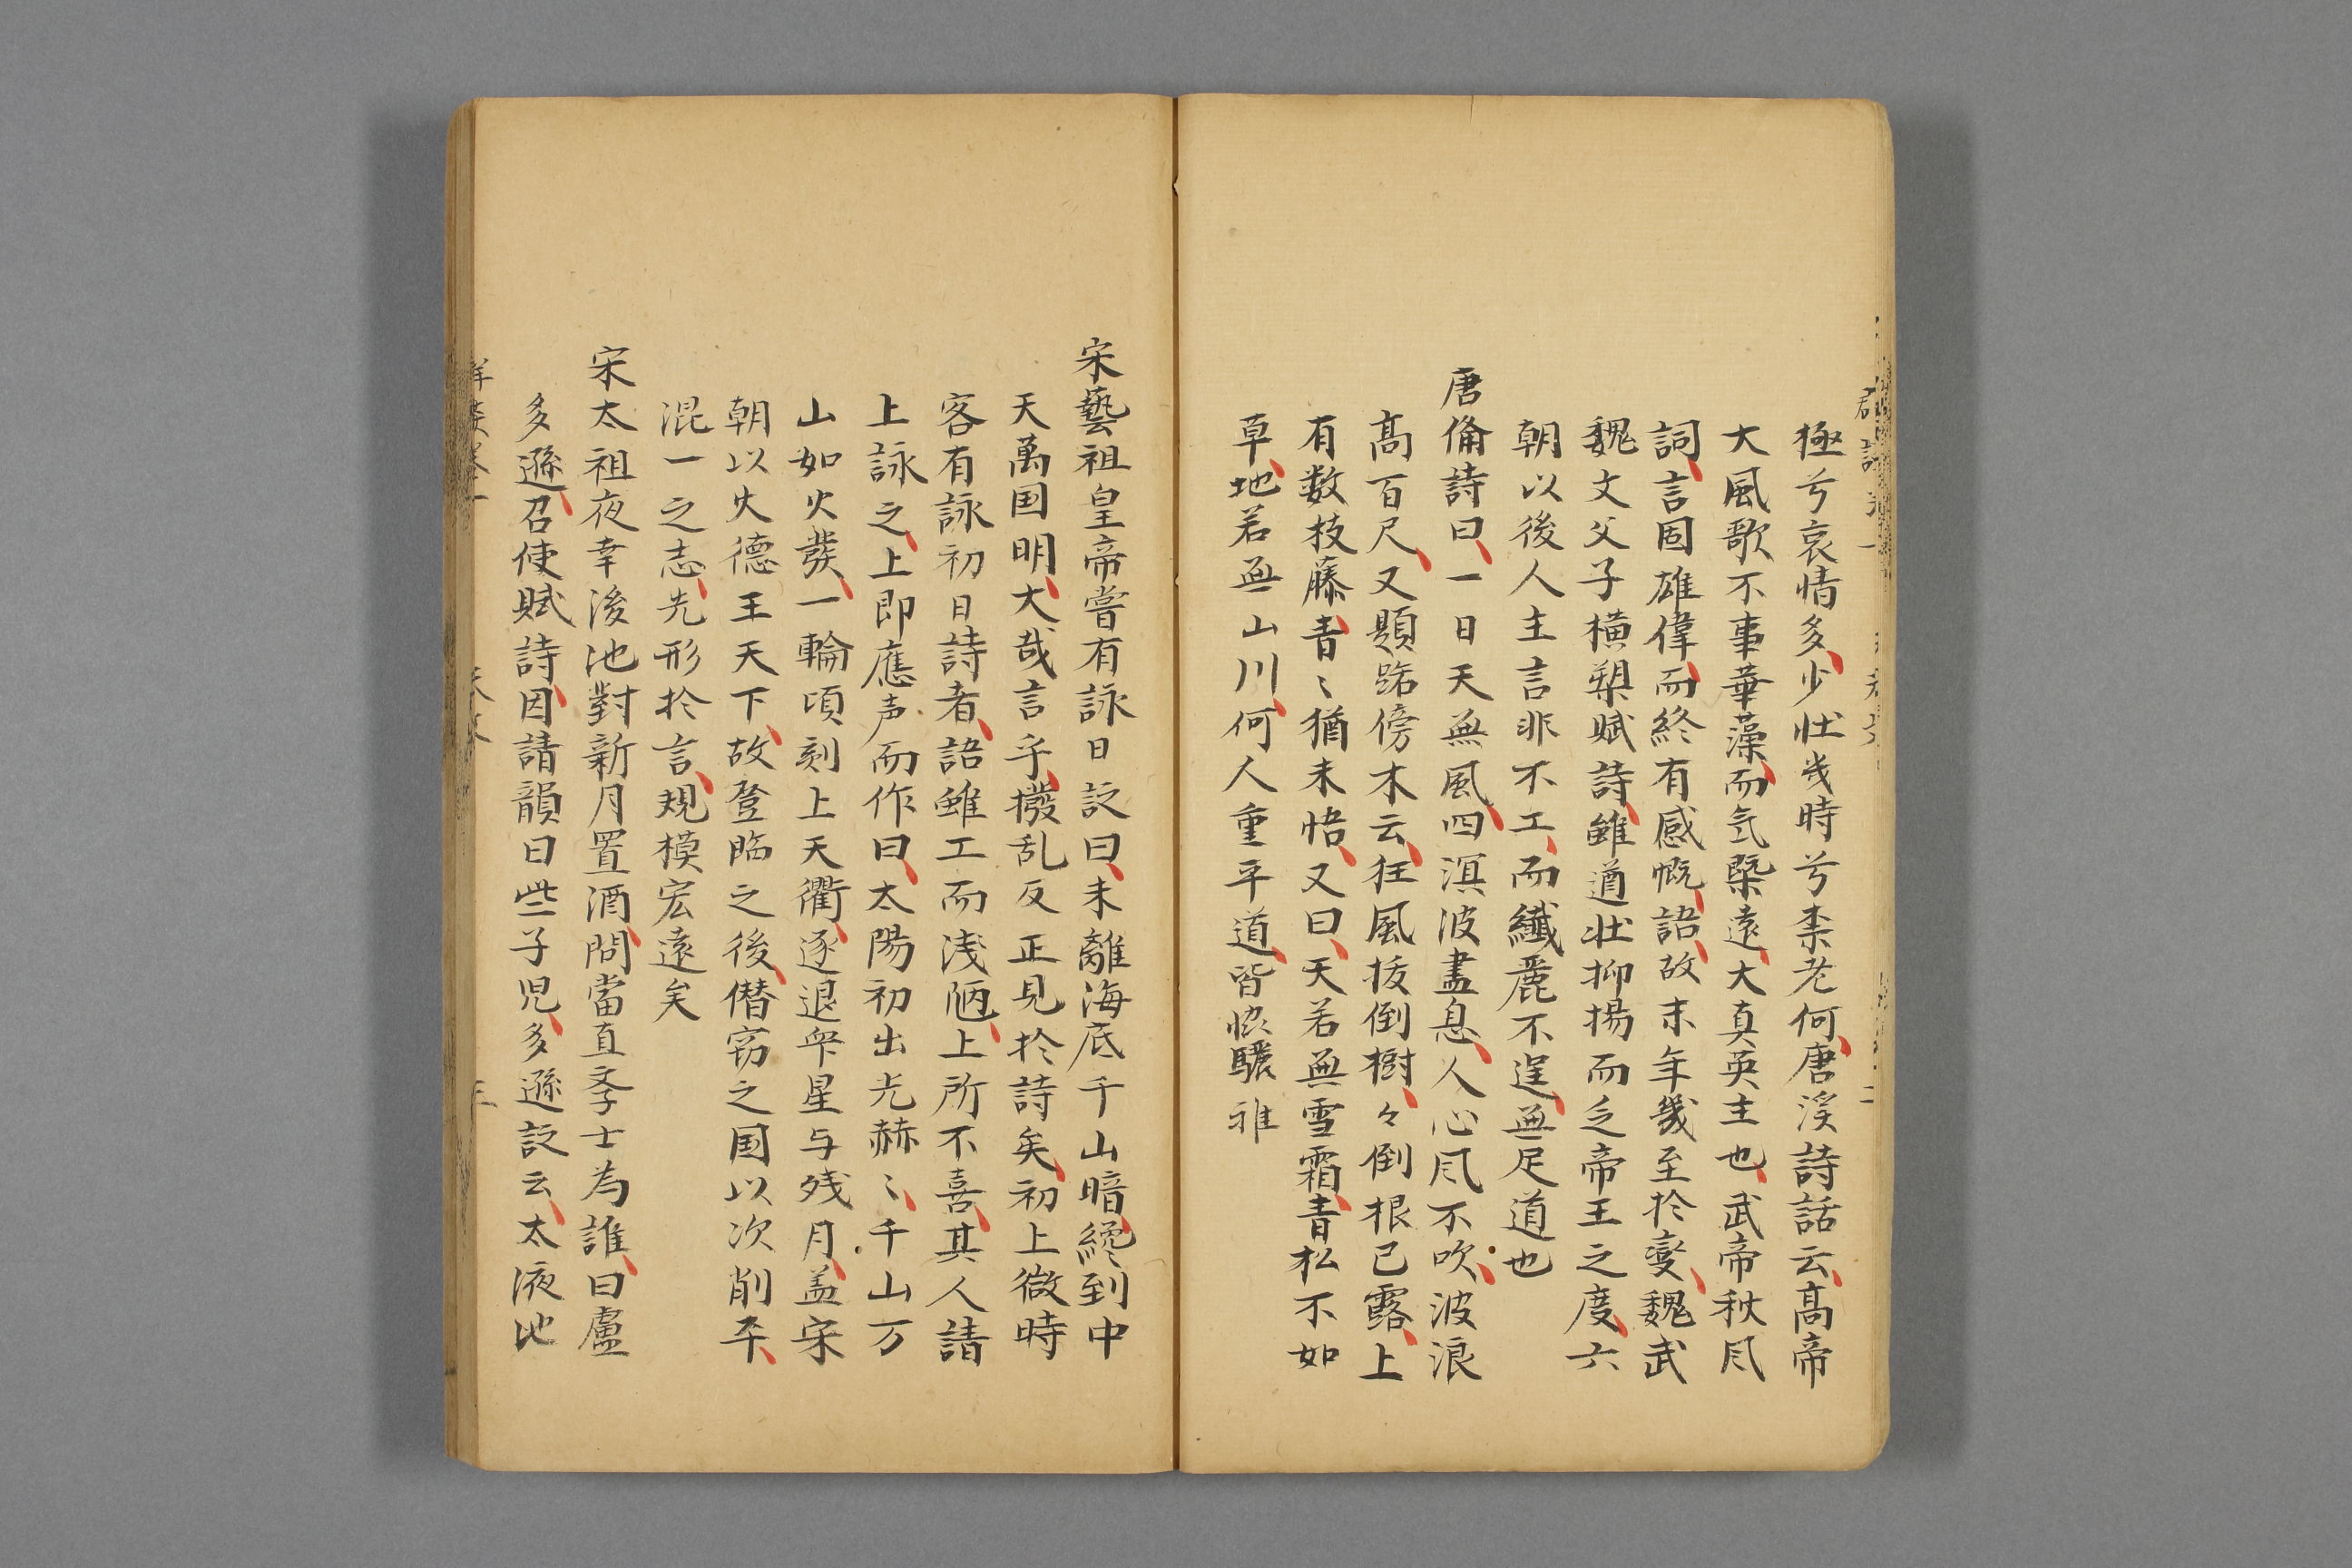 極兮哀情多、少壮幾時兮柰老何、唐溪詩話云、髙帝
大風歌不事華藻、而気槩遠、大真英主也、武帝秋凨
詞、言固雄偉、而終有感慨、語、故末年幾至於變、魏武
魏文父子横槊賦詩、雖遒壮抑揚而乏帝王之度、六
朝以後人主言非不工、而纖麗不逞、無足道也
唐備詩曰、一日天無風、四溟波盡息、人心凨不吹、波浪
髙百尺、又題路傍木云、狂風拔倒樹、々倒根已露、上
有数枝藤、青〻猶未悟、又曰、天若無雪霜、青松不如
草、地若無山川、何人重平道、皆恢騷雅
宋藝祖皇帝嘗有詠日詩曰、未離海底千山暗、纔到中
天萬国明、大哉言乎、撥乱反正見於詩矣、初上微時
客有詠初日詩者、語雖工而浅陋、上所不喜、其人請
上詠之、上即應声而作曰、太陽初出光赫〻、千山万
山如火發、一輪頃刻上天衢、逐退衆星与残月、盖宋
朝以火德王天下、故登臨之後、僣窃之国以次削平、
混一之志、先形於言、規模宏遠矣
宋太祖夜幸後池對新月置酒、問當直斈士為誰、曰盧
多遜、召使賦詩、因請韻曰些子児、多遜詩云、太液池